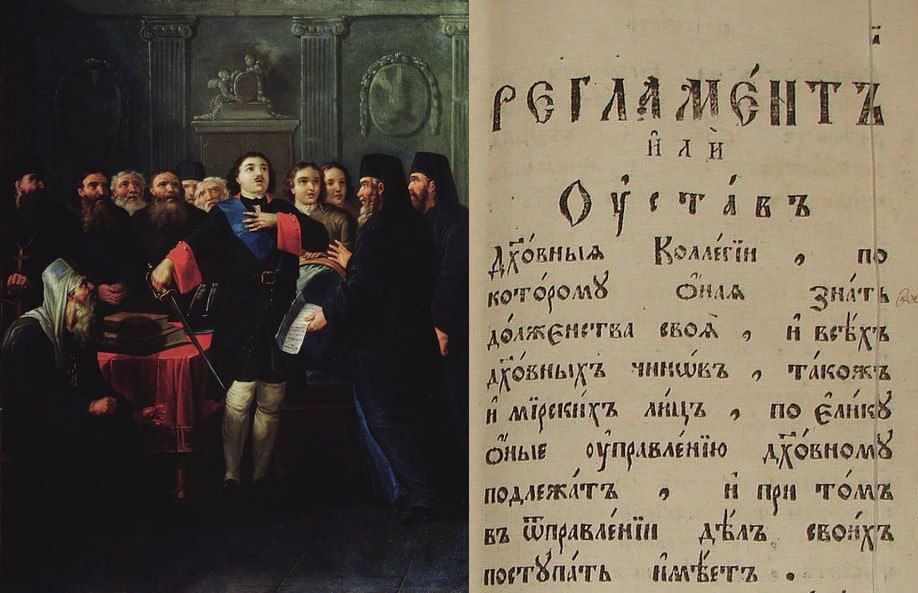 а҃
РЕГЛАМЕ́НТЪ
и҆лѝ
Оу҆ста́въ
дх҃о́вныѧ Коллегїи , по
кото́рому о҆́наѧ зна́ть
до́лженства своѧ̀ , и҆ всѣ́хъ
дх҃о́вныхъ чинѡ́въ , та́кожъ
и҆ мїрски́хъ ли́цъ , по є҆ли́кꙋ
о҆́ные оу҆правле́нїю дх҃о́вному
подлежа́тъ , и҆ при то́мъ
въ ѿправле́нїи дѣ́лъ свои́хъ
поступа́ть и҆мѣ́етъ .